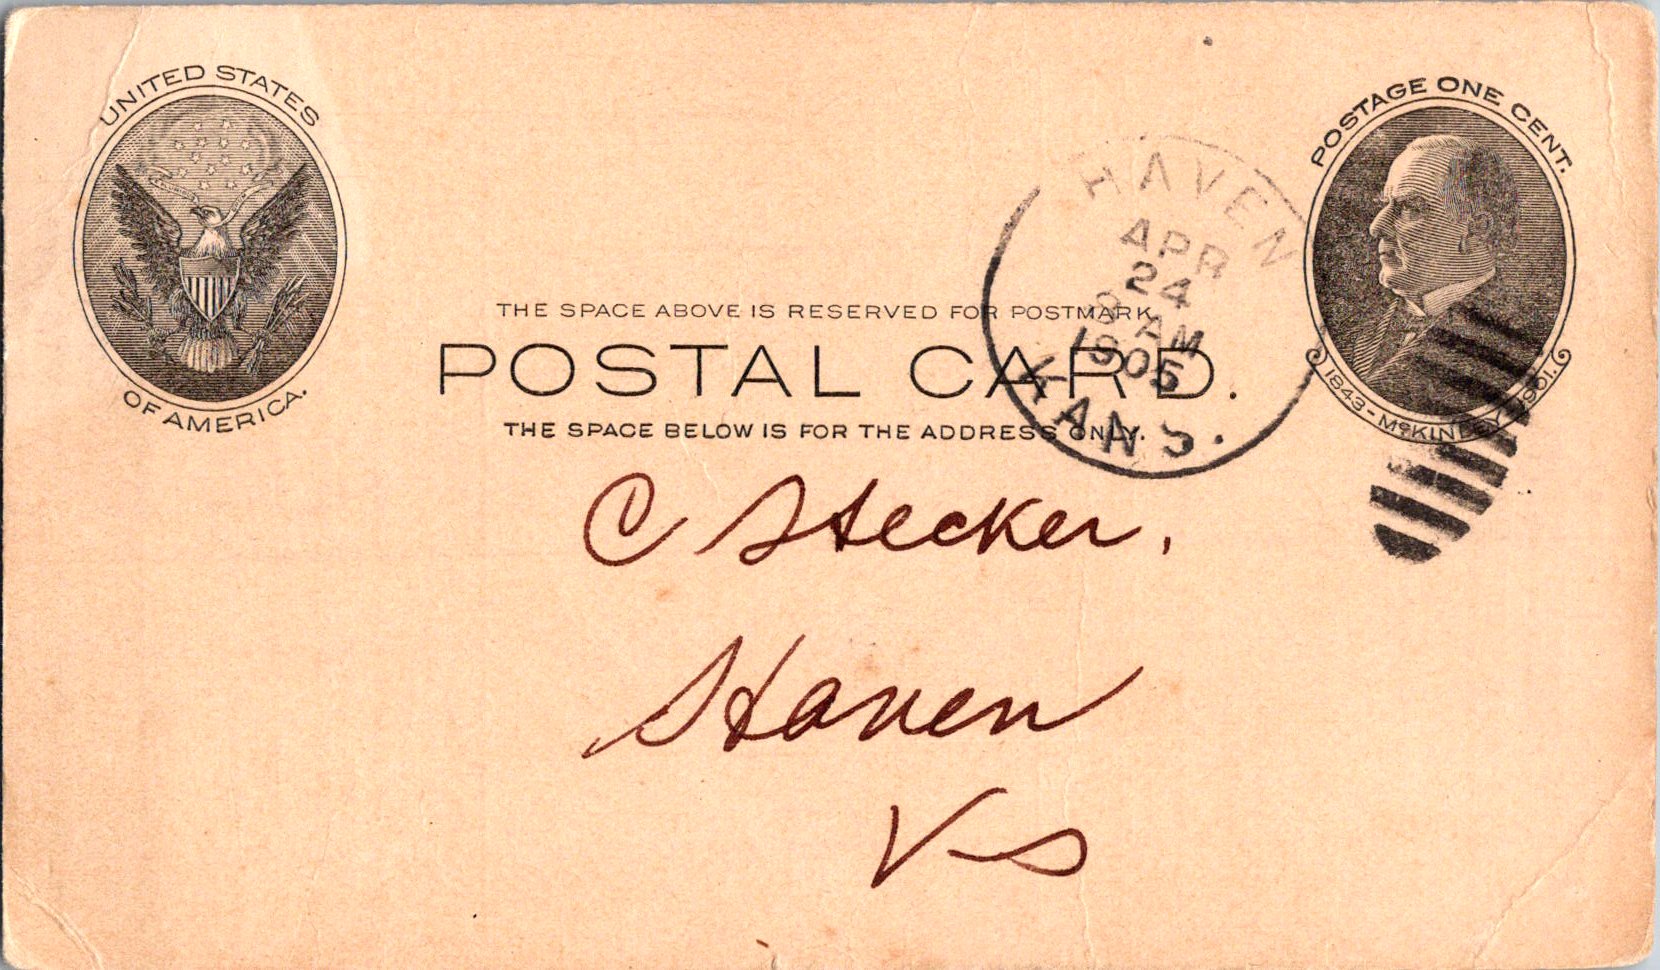 UNITED STATES
OF AMERICA.
POSTAGE ONE CENT.
1843-McKINLEY-1901.
HAVEN
APR
24
8 AM
1905
KANS.
THE SPACE ABOVE IS RESERVED FOR POSTMARK.
POSTAL CARD.
THE SPACE BELOW IS FOR THE ADDRESS ONLY.
C Stecker.
Haven
Ks